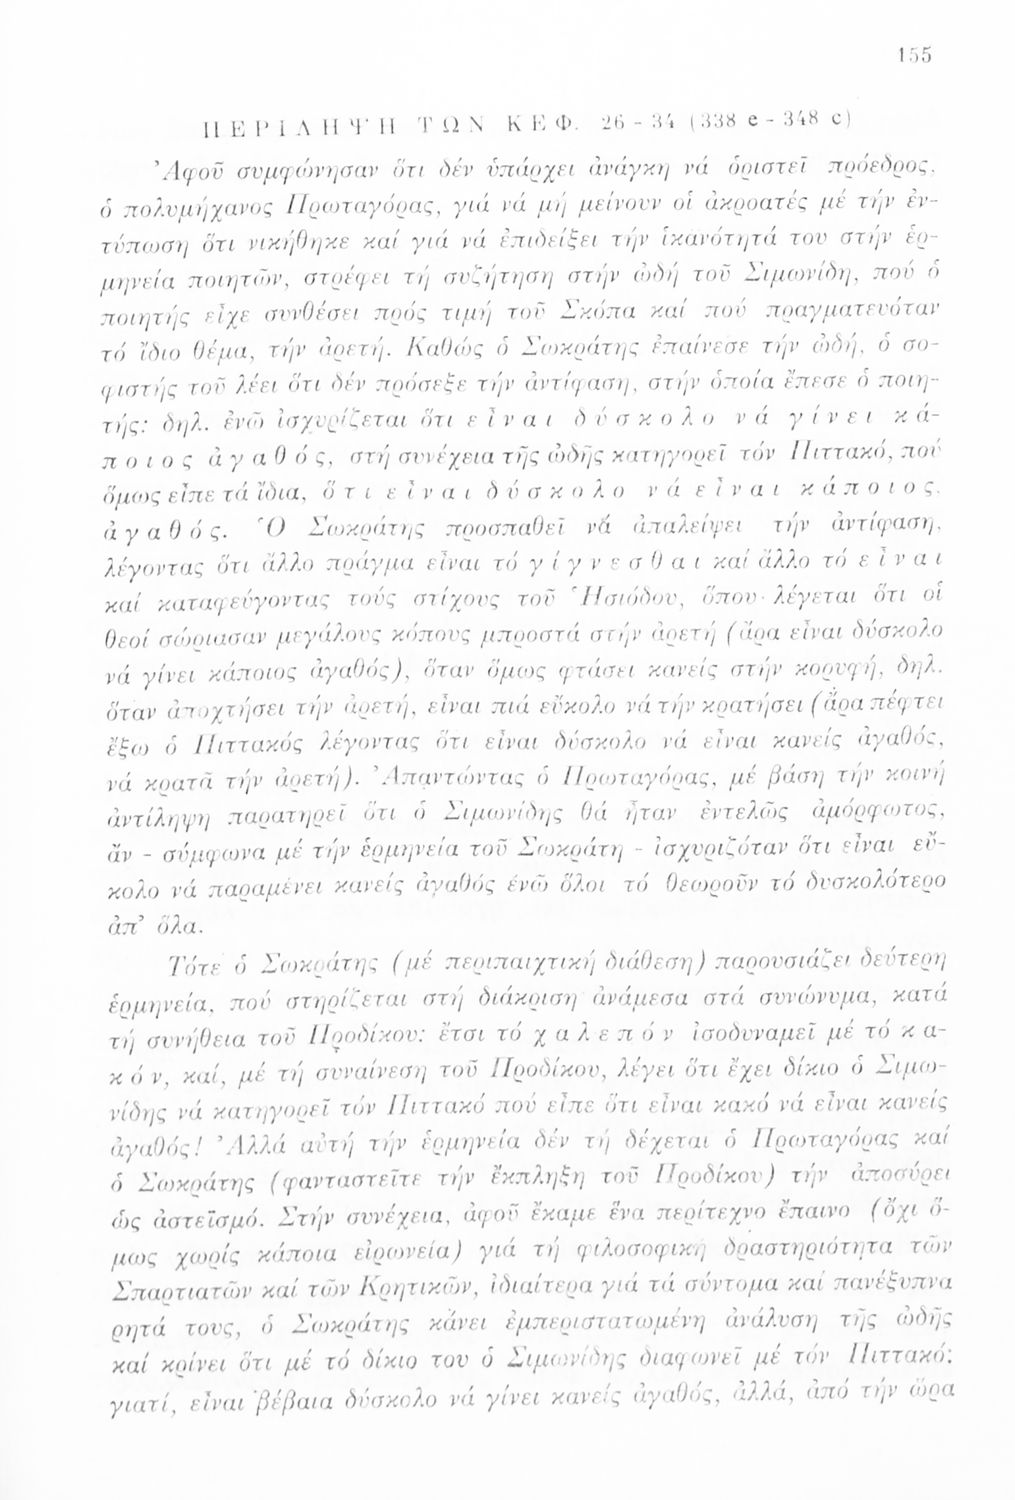 155
ΠΕΡΙΛΗΨΗ ΤΩΝ ΚΕΦ. 26 - 34 (338 e - 348 c)
Ἀφοῦ συμφώνησαν ὅτι δέν ὑπάρχει ἀνάγκη νά ὁριστεῖ πρόεδρος,
ὁ πολυμήχανος Πρωταγόρας, γιά νά μή μείνουν οἱ ἀκροατές μέ τήν ἐν-
τύπωση ὅτι νικήθηκε καί γιά νά ἐπιδείξει τήν ἱκανότητά του στήν ἑρ-
μηνεία ποιητῶν, στρέφει τή συζήτηση στήν ὠδή τοῦ Σιμωνίδη, πού ὁ
ποιητής εἶχε συνθέσει πρός τιμή τοῦ Σκόπα καί πού πραγματευόταν
τό ἴδιο θέμα, τήν ἀρετή. Καθώς ὁ Σωκράτης ἐπαίνεσε τήν ὠδή, ὁ σο-
φιστής τοῦ λέει ὅτι δέν πρόσεξε τήν ἀντίφαση, στήν ὁποία ἔπεσε ὁ ποιη-
τής: δηλ. ἐνῶ ἰσχυρίζεται ὅτι εἶναι δύσκολο νά γίνει κά-
ποιος ἀγαθός, στή συνέχεια τῆς ὠδῆς κατηγορεῖ τόν Πιττακό, πού
ὅμως εἶπε τά ἴδια, ὅτι εἶναι δύσκολο νά εἶναι κάποιος,
ἀγαθός. Ὁ Σωκράτης προσπαθεῖ νά ἀπαλείψει τήν ἀντίφαση,
λέγοντας ὅτι ἄλλο πράγμα εἶναι τό γίγνεσθαι καί ἄλλο τό εἶναι
καί καταφεύγοντας τούς στίχους τοῦ Ἡσιόδου, ὅπου λέγεται ὅτι οἱ
θεοί σώριασαν μεγάλους κόπους μπροστά στήν ἀρετή (ἄρα εἶναι δύσκολο
νά γίνει κάποιος ἀγαθός), ὅταν ὅμως φτάσει κανείς στήν κορυφή, δηλ.
ὅταν ἀποχτήσει τήν ἀρετή, εἶναι πιά εὔκολο νά τήν κρατήσει (ἄρα πέφτει
ἔξω ὁ Πιττακός λέγοντας ὅτι εἶναι δύσκολο νά εἶναι κανείς ἀγαθός,
νά κρατᾶ τήν ἀρετή). Ἀπαντώντας ὁ Πρωταγόρας, μέ βάση τήν κοινή
ἀντίληψη παρατηρεῖ ὅτι ὁ Σιμωνίδης θά ἦταν ἐντελῶς ἀμόρφωτος,
ἄν - σύμφωνα μέ τήν ἑρμηνεία τοῦ Σωκράτη - ἰσχυριζόταν ὅτι εἶναι εὔ-
κολο νά παραμένει κανείς ἀγαθός ἐνῶ ὅλοι τό θεωροῦν τό δυσκολότερο
ἀπ' ὅλα.
Τότε ὁ Σωκράτης (μέ περιπαιχτική διάθεση) παρουσιάζει δεύτερη
ἑρμηνεία, πού στηρίζεται στή διάκριση ἀνάμεσα στά συνώνυμα, κατά
τή συνήθεια τοῦ Προδίκου: ἔτσι τό χαλεπόν ἰσοδυναμεῖ μέ τό κα-
κόν, καί, μέ τή συναίνεση τοῦ Προδίκου, λέγει ὅτι ἔχει δίκιο ὁ Σιμω-
νίδης νά κατηγορεῖ τόν Πιττακό πού εἶπε ὅτι εἶναι κακό νά εἶναι κανείς
ἀγαθός! Ἀλλά αὐτή τήν ἑρμηνεία δέν τή δέχεται ὁ Πρωταγόρας καί
ὁ Σωκράτης (φανταστεῖτε τήν ἔκπληξη τοῦ Προδίκου) τήν ἀποσύρει
ὡς ἀστεϊσμό. Στήν συνέχεια, ἀφοῦ ἔκαμε ἕνα περίτεχνο ἔπαινο (ὄχι ὅ-
μως χωρίς κάποια εἰρωνεία) γιά τή φιλοσοφική δραστηριότητα τῶν
Σπαρτιατῶν καί τῶν Κρητικῶν, ἰδιαίτερα γιά τά σύντομα καί πανέξυπνα
ρητά τους, ὁ Σωκράτης κάνει ἐμπεριστατωμένη ἀνάλυση τῆς ὠδῆς
καί κρίνει ὅτι μέ τό δίκιο του ὁ Σιμωνίδης διαφωνεῖ μέ τόν Πιττακό:
γιατί, εἶναι βέβαια δύσκολο νά γίνει κανείς ἀγαθός, ἀλλά, ἀπό τήν ὥρα